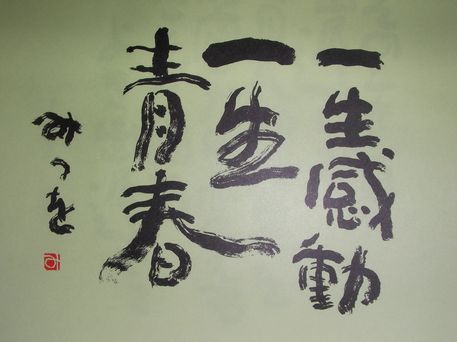 一生感動
一生
青春
みつを